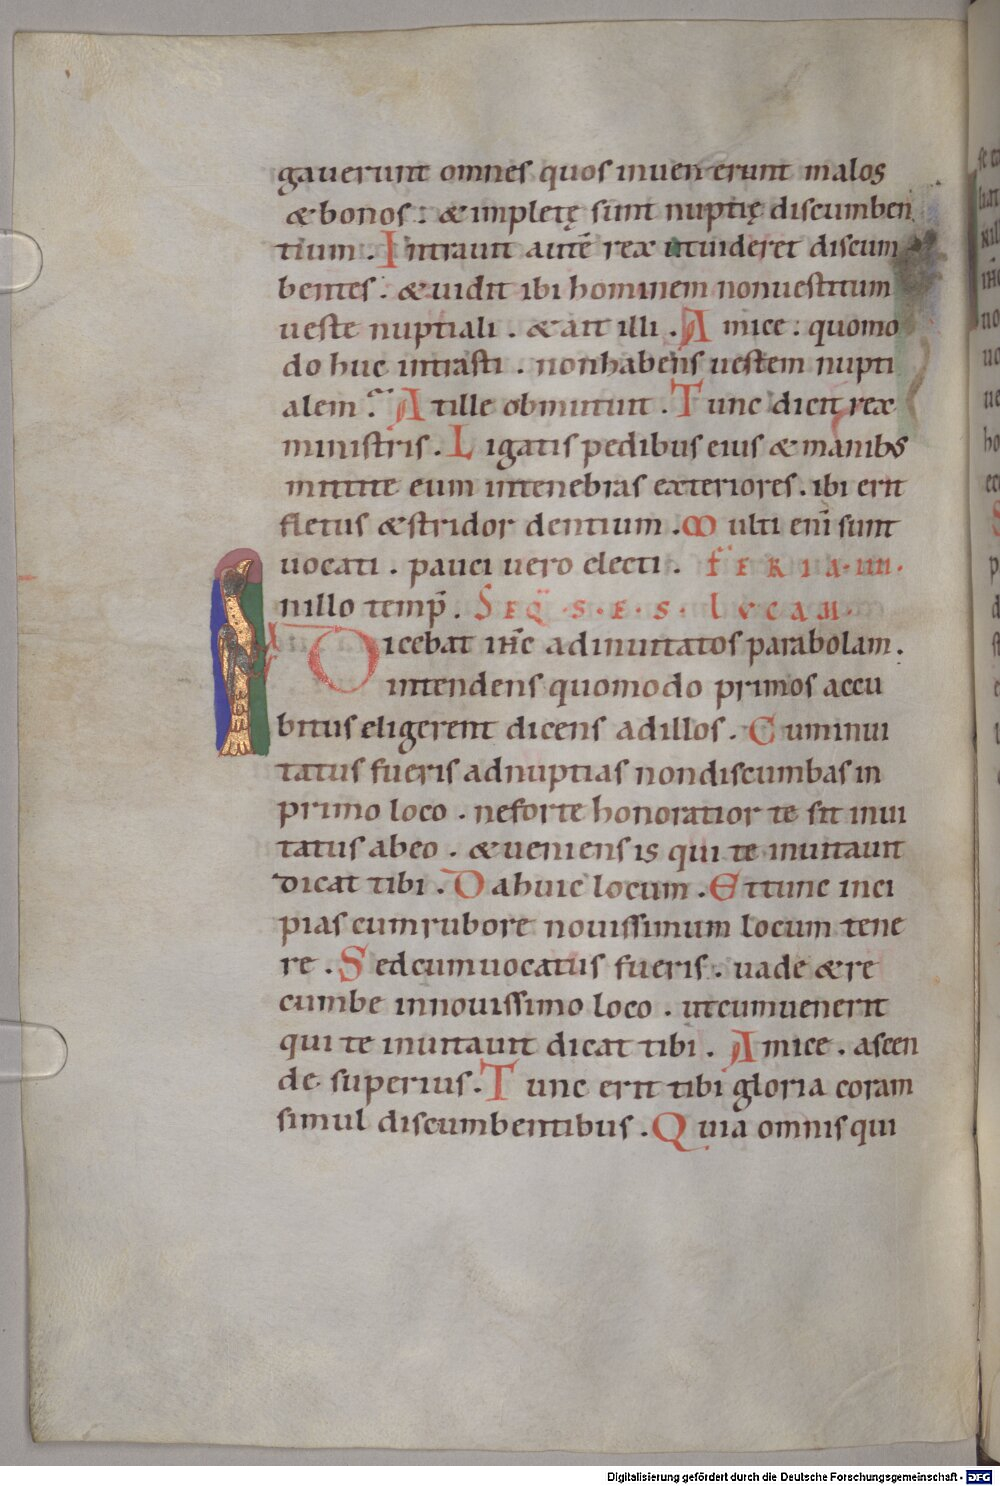 gauerunt omnes quos inuenerunt malos
& bonos: & impletę sunt nuptię discumben
tium. Intrauit autē rex ut uideret discum
bentes. & uidit ibi hominem non uestitum
ueste nuptiali. & ait illi. Amice: quomo
do huc intrasti. non habens uestem nupti
alem. At ille obmutuit. Tunc dicit rex
ministris. Ligatis pedibus eius & manibs
mittite eum in tenebras exteriores. ibi erit
fletus & stridor dentium. Multi enī sunt
uocati. pauci uero electi. FERIA. IIII.
In illo temp̄. SEQ̄. S. E. S. LVCAM.
Dicebat ih̄c ad inuitatos parabolam.
intendens quomodo primos accu
bitus eligerent dicens ad illos. Cum inui
tatus fueris ad nuptias non discumbas in
primo loco. ne forte honoratior te sit inui
tatus ab eo. & ueniens is qui te inuitauit
dicat tibi. Da huic locum. Et tunc inci
pias cum rubore nouissimum locum tene
re. Sed cum uocatus fueris. uade & re
cumbe in nouissimo loco. ut cum uenerit
qui te inuitauit dicat tibi. Amice. ascen
de superius. Tunc erit tibi gloria coram
simul discumbentibus. Quia omnis qui
Digitalisierung gefördert durch die Deutsche Forschungsgemeinschaft - DFG